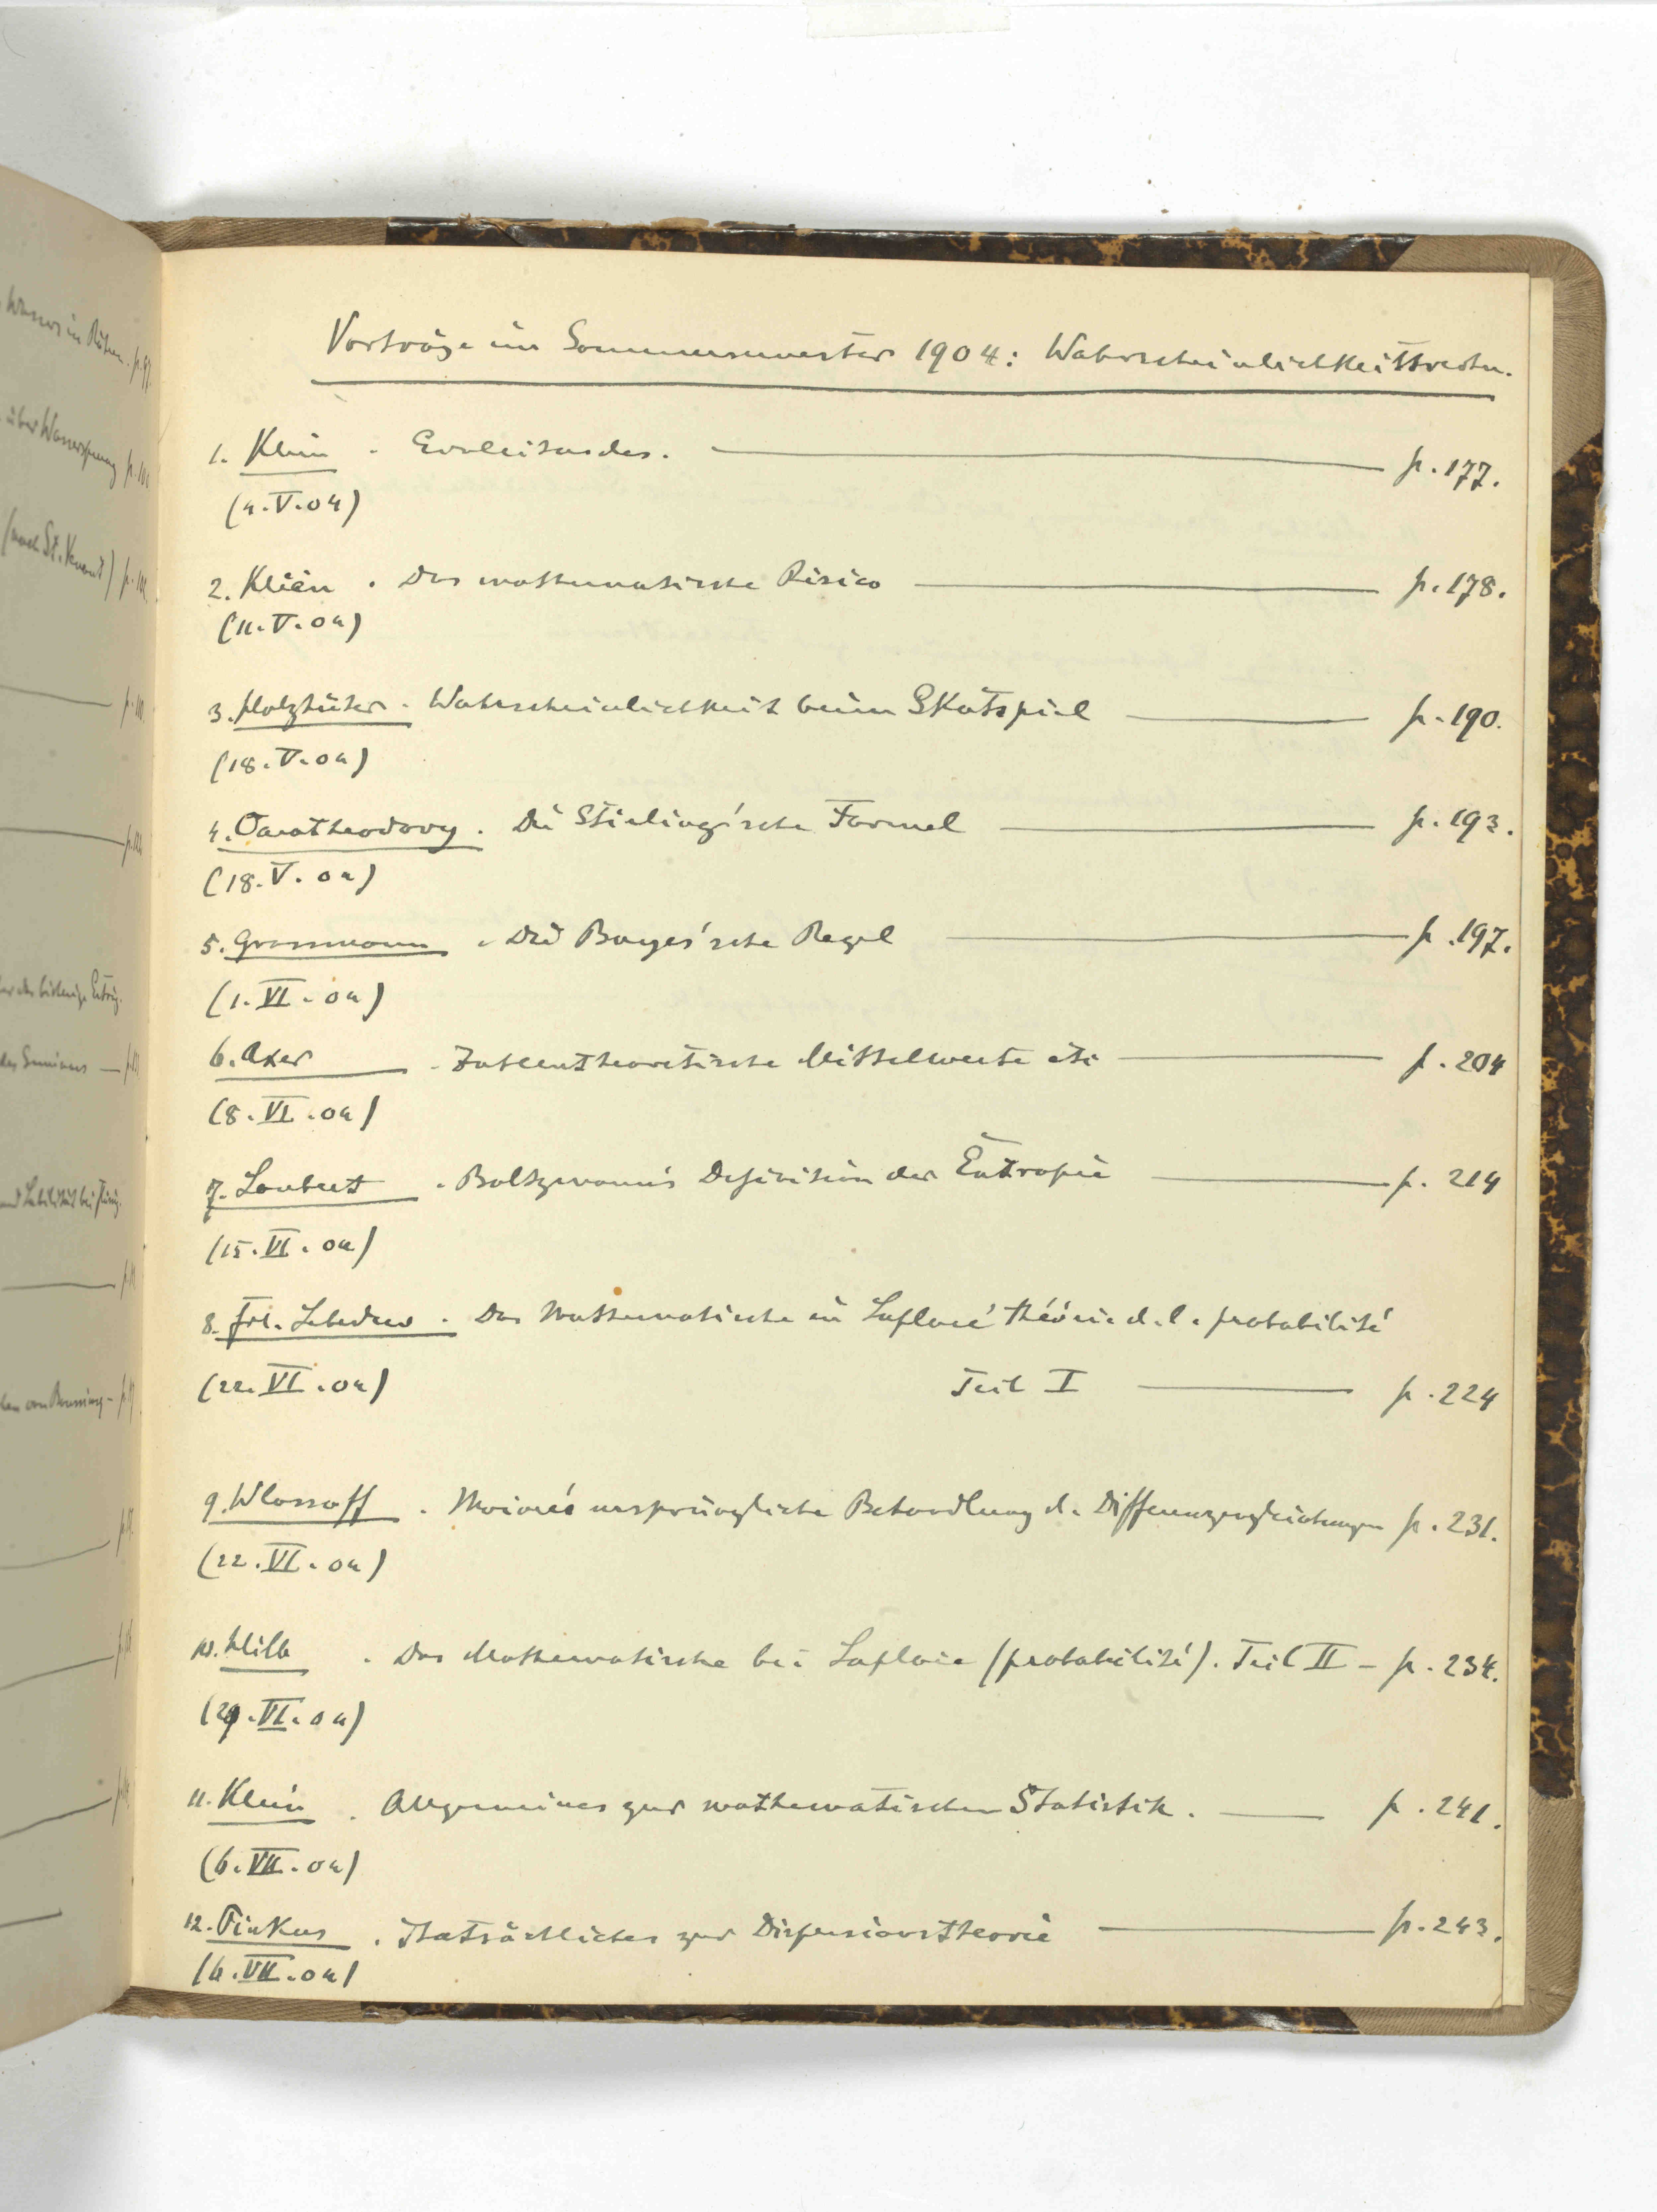 Wasser in Röhren. p.
über Wassersprung p.
(nach St. Venant) p.
des Seminars — p.
Vorträge im Sommersemester 1904: Wahrscheinlichkeitsrechn.
1. Klein . Einleitendes. p. 177.
(4.V.04)
2. Klein . Das mathematische Risico p. 178.
(11.V.04)
3. Holzhüter . Wahrscheinlichkeit beim Skatspiel p. 190.
(18.V.04)
4. Caratheodory . Die Stirling'sche Formel p. 193.
(18.V.04)
5. Grossmann . Die Bayes'sche Regel p. 197.
(1.VI.04)
6. Axer . Zahlentheoretische Mittelwerte etc p. 204
(8.VI.04)
7. Loubert . Boltzmann's Definition der Entropie p. 214
(15.VI.04)
8. Frl. Lebedew . Das Mathematische in Laplace' théorie d. l. probabilité
(22.VI.04) Teil I p. 224
9. Wlassoff . Moivre's ursprüngliche Behandlung d. Differenzengleichungen p. 231.
(22.VI.04)
10. Hilb . Das Mathematische bei Laplace (probabilité). Teil II – p. 234.
(29.VI.04)
11. Klein . Allgemeines zur mathematischen Statistik. p. 241.
(6.VII.04)
12. Pinkus . Thatsächliches zur Dispersionstheorie p. 243.
(6.VII.04)